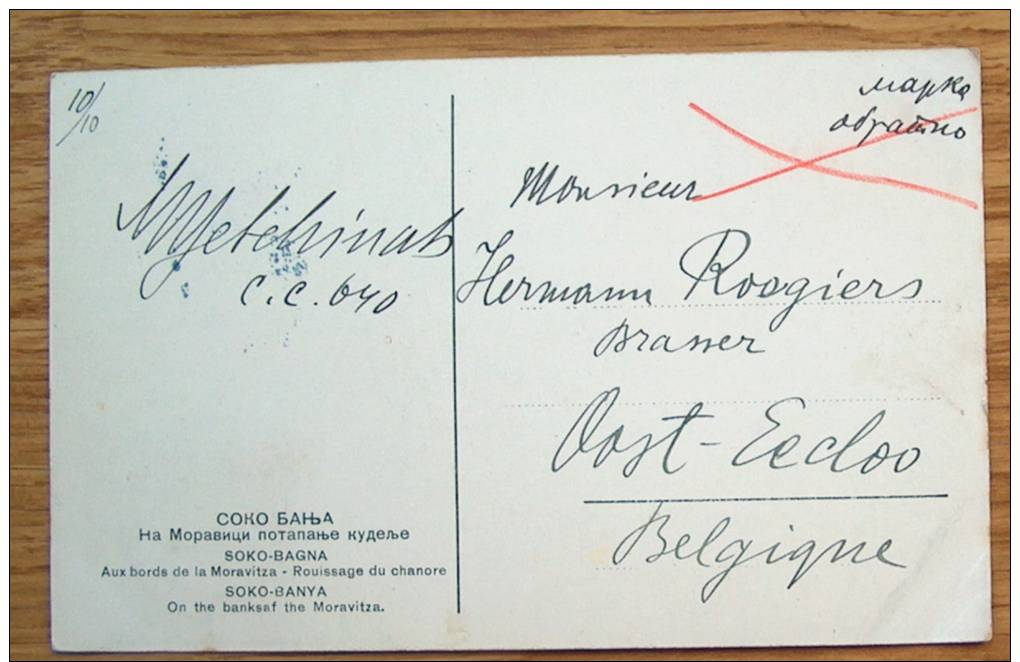 10/10
C.C. 640
марка
обратно
Monsieur
Hermann Roogiers
Brasser
Oost-Eecloo
Belgique
СОКО БАЊА
На Моравици потапање кудеље
SOKO-BAGNA
Aux bords de la Moravitza - Rouissage du chanore
SOKO-BANYA
On the banksaf the Moravitza.